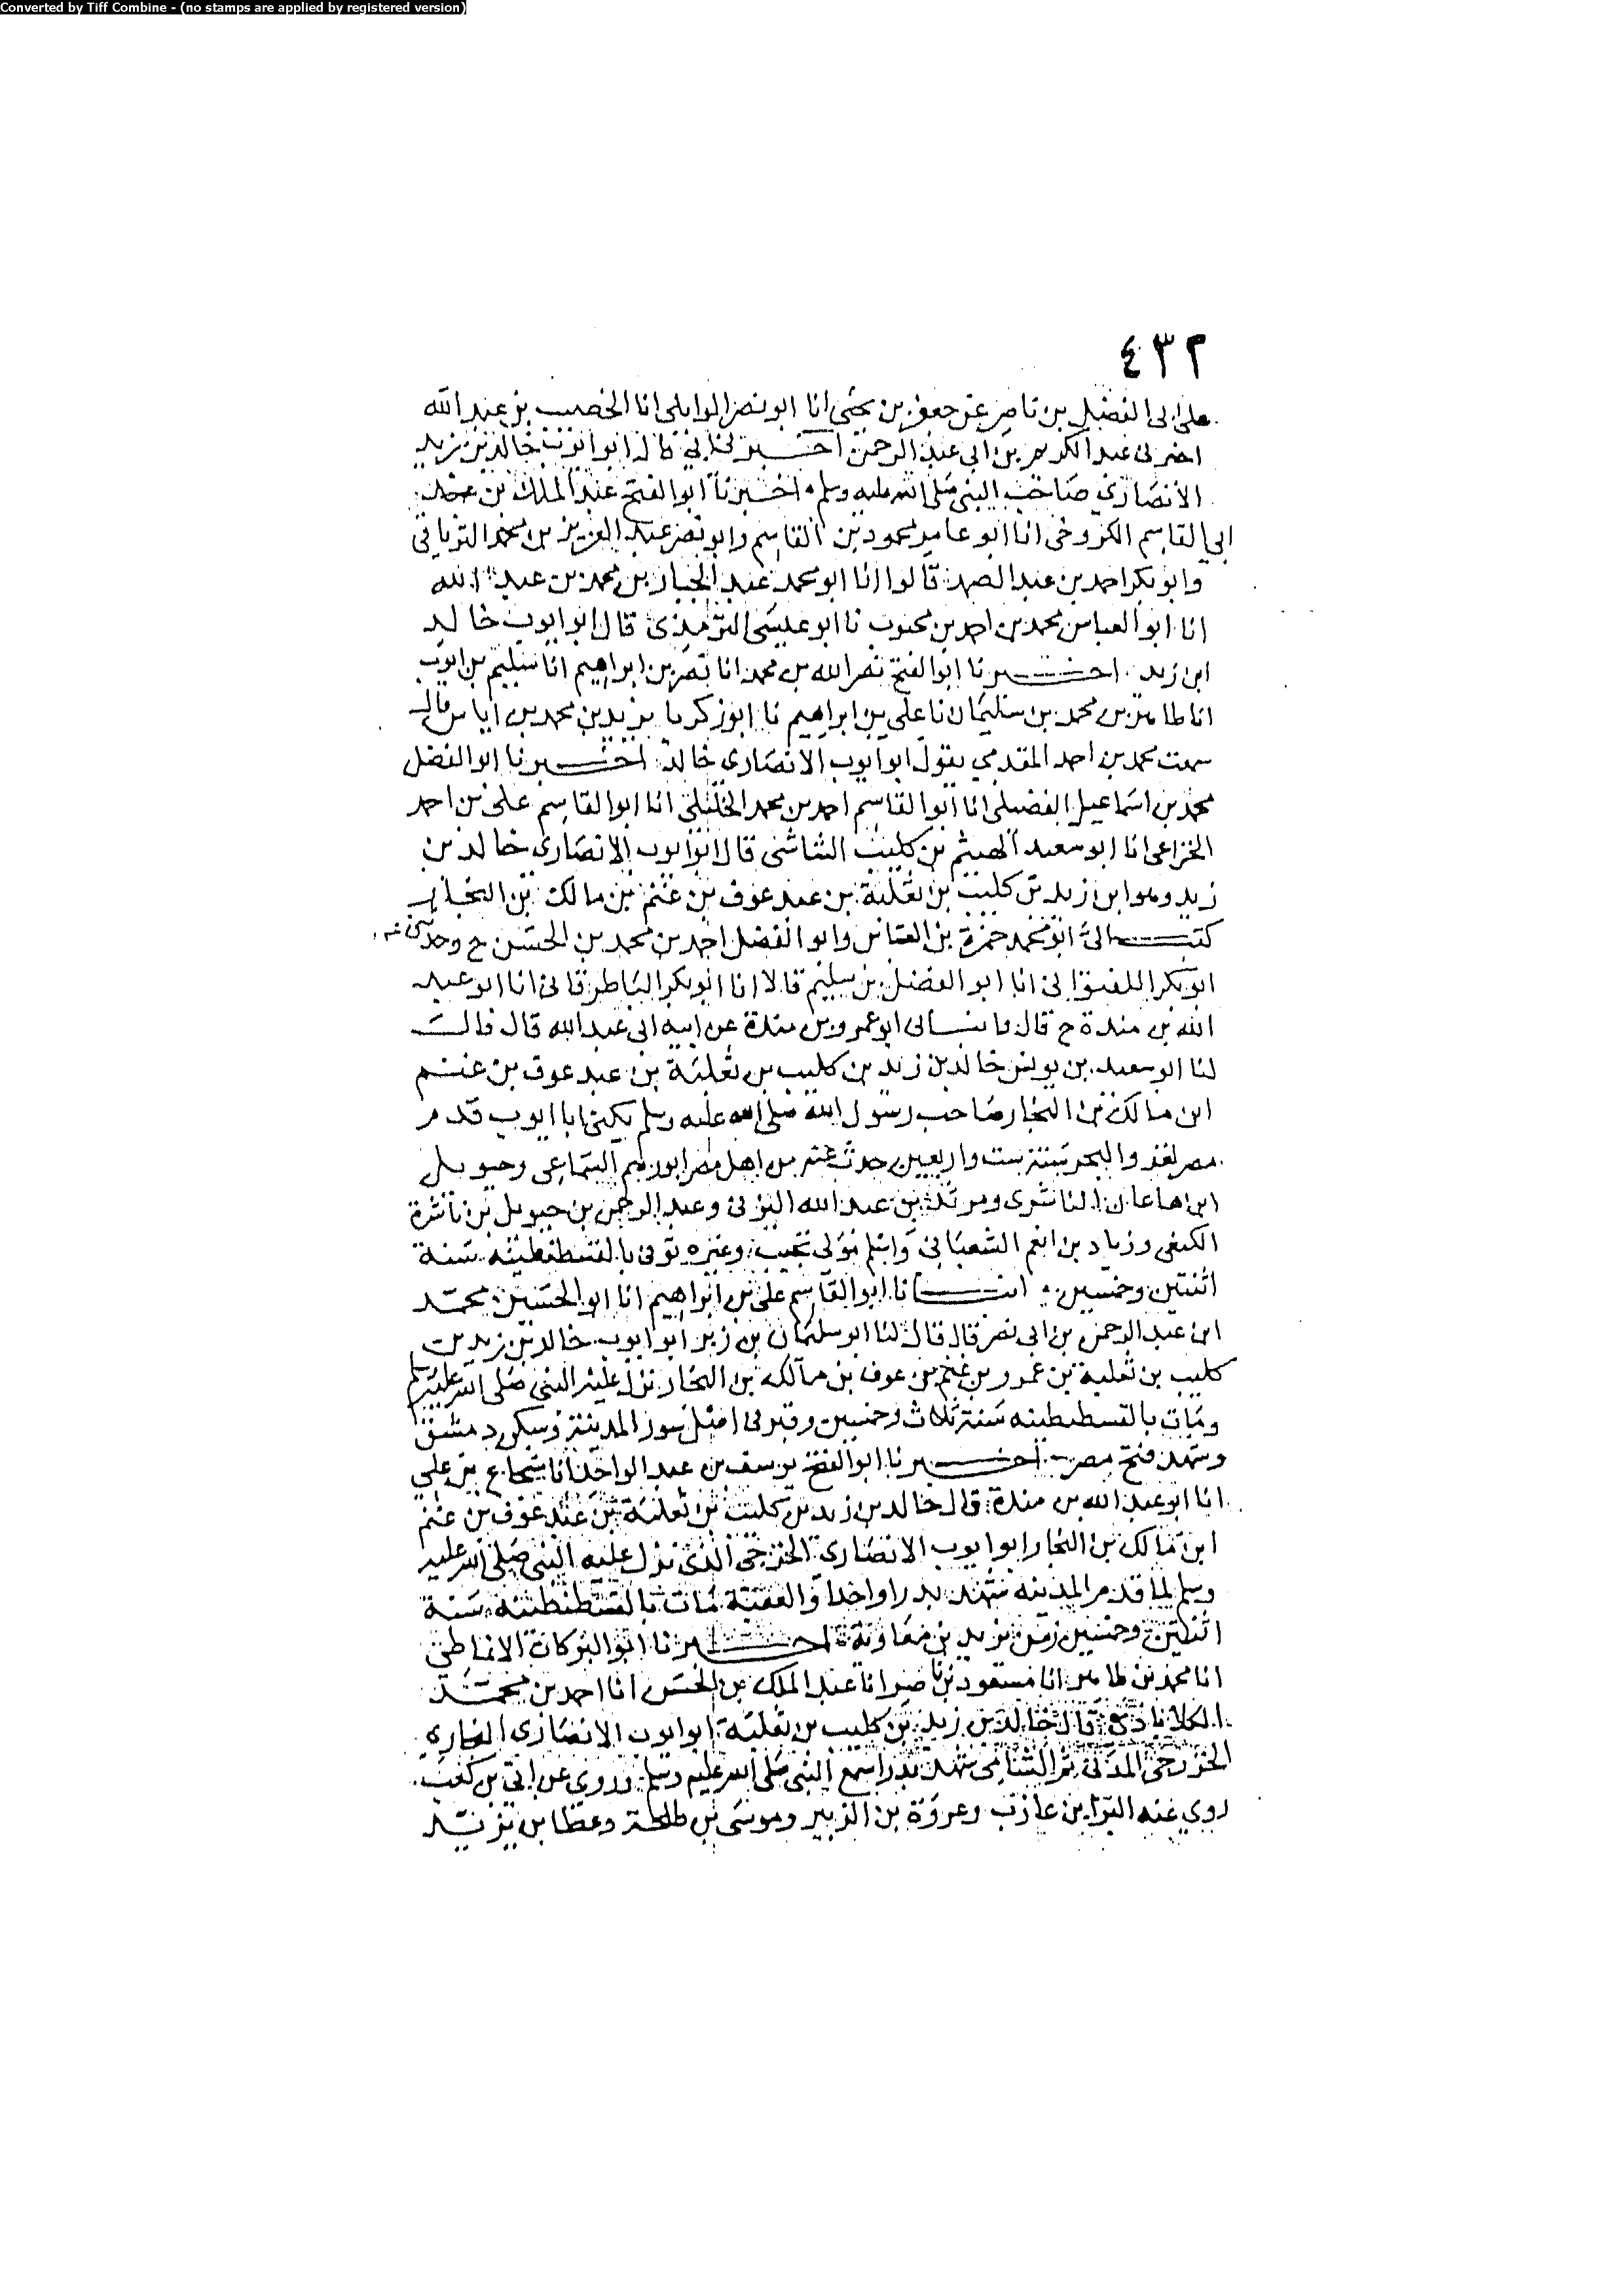 Converted by Tiff Combine - (no stamps are applied by registered version)
٤٣٢
على ابى الفضل بن ناصر عن جعفر بن يحيى انا ابو نصر الوايلى انا الخصيب بن عبد الله
اخبرنى عبد الكريم بن ابى عبد الرحمن اخبرنى ابى قال ابو ايوب خالد بن زيد
الانصاري صاحب النبى صلى الله عليه وسلم اخبرنا ابو الفتح عبد الملك بن عبد الله
ابي القاسم الكروخى انا ابو عامر محمود بن القاسم وابو نصر عبد العزيز بن محمد الترياقي
وابو بكر احمد بن عبد الصمد قالوا انا ابو محمد عبد الجبار بن محمد بن عبد الله
انا ابو العباس محمد بن احمد بن محبوب نا ابو عيسى الترمذى قال ابو ايوب خالد
ابن زيد اخبرنا ابو الفتح نصر الله بن محمد انا نصر بن ابراهيم انا سليم بن ايوب
انا طاهر بن محمد بن سليمان نا على بن ابراهيم نا ابو زكريا يزيد بن محمد بن اياس قال
سمعت محمد بن احمد المقدمي يقول ابو ايوب الانصارى خالد اخبرنا ابو الفضل
محمد بن اسماعيل الفضيلى انا ابو القاسم احمد بن محمد الخليلى انا ابو القاسم على بن احمد
الخزاعى انا ابو سعيد الهيثم بن كليب الشاشى قال ابو ايوب الانصارى خالد بن
زيد وهو ابن زيد بن كليب بن ثعلبة بن عبد عوف بن غنم بن مالك بن النجار
كتب الىَّ ابو محمد حمزة بن العباس وابو الفضل احمد بن محمد بن الحسن ح وحدثنى
ابو بكر اللفتوانى انا ابو الفضل بن سليم قالا انا ابو بكر الباطرقانى انا ابو عبد
الله بن مندة ح قال وانبانى ابو عمرو بن مندة عن ابيه ابى عبد الله قال قال
لنا ابو سعيد بن يونس خالد بن زيد بن كليب بن ثعلبة بن عبد عوف بن غنم
ابن مالك بن النجار صاحب رسول الله صلى الله عليه وسلم يكنى ابا ايوب قدم
مصر لغزو البحر سنة ست واربعين حدث عنه من اهل مصر ابو رهم السماعى وحيويل
ابن هاعان الناشرى ومرثد بن عبد الله اليزنى وعبد الرحمن بن حيويل بن ناشرة
الكنعى وزياد بن انعم الشعبانى واسلم مولى تجيب وغيره توفى بالقسطنطينية سنة
اثنتين وخمسين انبانا ابو القاسم على بن ابراهيم انا ابو الحسين محمد
ابن عبد الرحمن بن ابى نصر قال قال لنا ابو سليمان بن زبر ابو ايوب خالد بن زيد بن
كليب بن ثعلبة بن عمرو بن غنم بن عوف بن مالك بن النجار نزل عليه النبى صلى الله عليه وسلم
ومات بالقسطنطينه سنة ثلاث وخمسين وقبر فى اصل سور المدينة وسكن دمشق
وشهد فتح مصر اخبرنا ابو الفتح يوسف بن عبد الواحد انا شجاع بن علي
انا ابو عبد الله بن مندة قال خالد بن زيد بن كليب بن ثعلبة بن عبد عوف بن غنم
ابن مالك بن النجار ابو ايوب الانصارى الخزرجى الذى نزل عليه النبى صلى الله عليه
وسلم لما قدم المدينه شهد بدرا واحدا والعقبة مات بالقسطنطينيه سنة
اثنتين وخمسين زمن يزيد بن معاوية اخبرنا ابو البركات الانماطى
انا محمد بن طاهر انا مسعود بن ناصر انا عبد الملك بن الحسن انا احمد بن محمد
الكلاباذى قال خالد بن زيد بن كليب بن ثعلبة ابو ايوب الانصارى النجارى
الخزرجى المدنى ثم الشامى شهد بدرا سمع النبى صلى الله عليه وسلم وروى عن ابى بن كعب
روى عنه البرا بن عازب وعروة بن الزبير وموسى بن طلحة وعطا بن يزيد